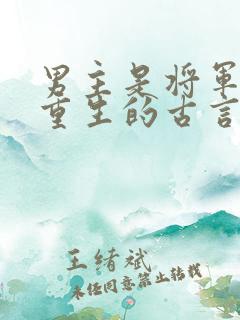 男主是将军
重生的古言
王绪斌
未经同意禁止转载